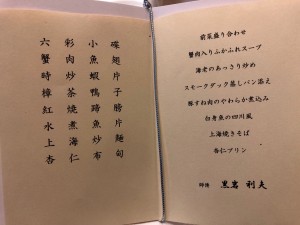 六彩小碟
蟹肉魚翅
時炒蝦片
樟茶鴨子
紅燒蹄膀
水煮魚片
上海炒麵
杏仁布甸
前菜盛り合わせ
蟹肉入りふかふれスープ
海老のあっさり炒め
スモークダック蒸しパン添え
豚すね肉のやわらか煮込み
白身魚の四川風
上海焼きそば
杏仁プリン
師傅 黒岩 利夫